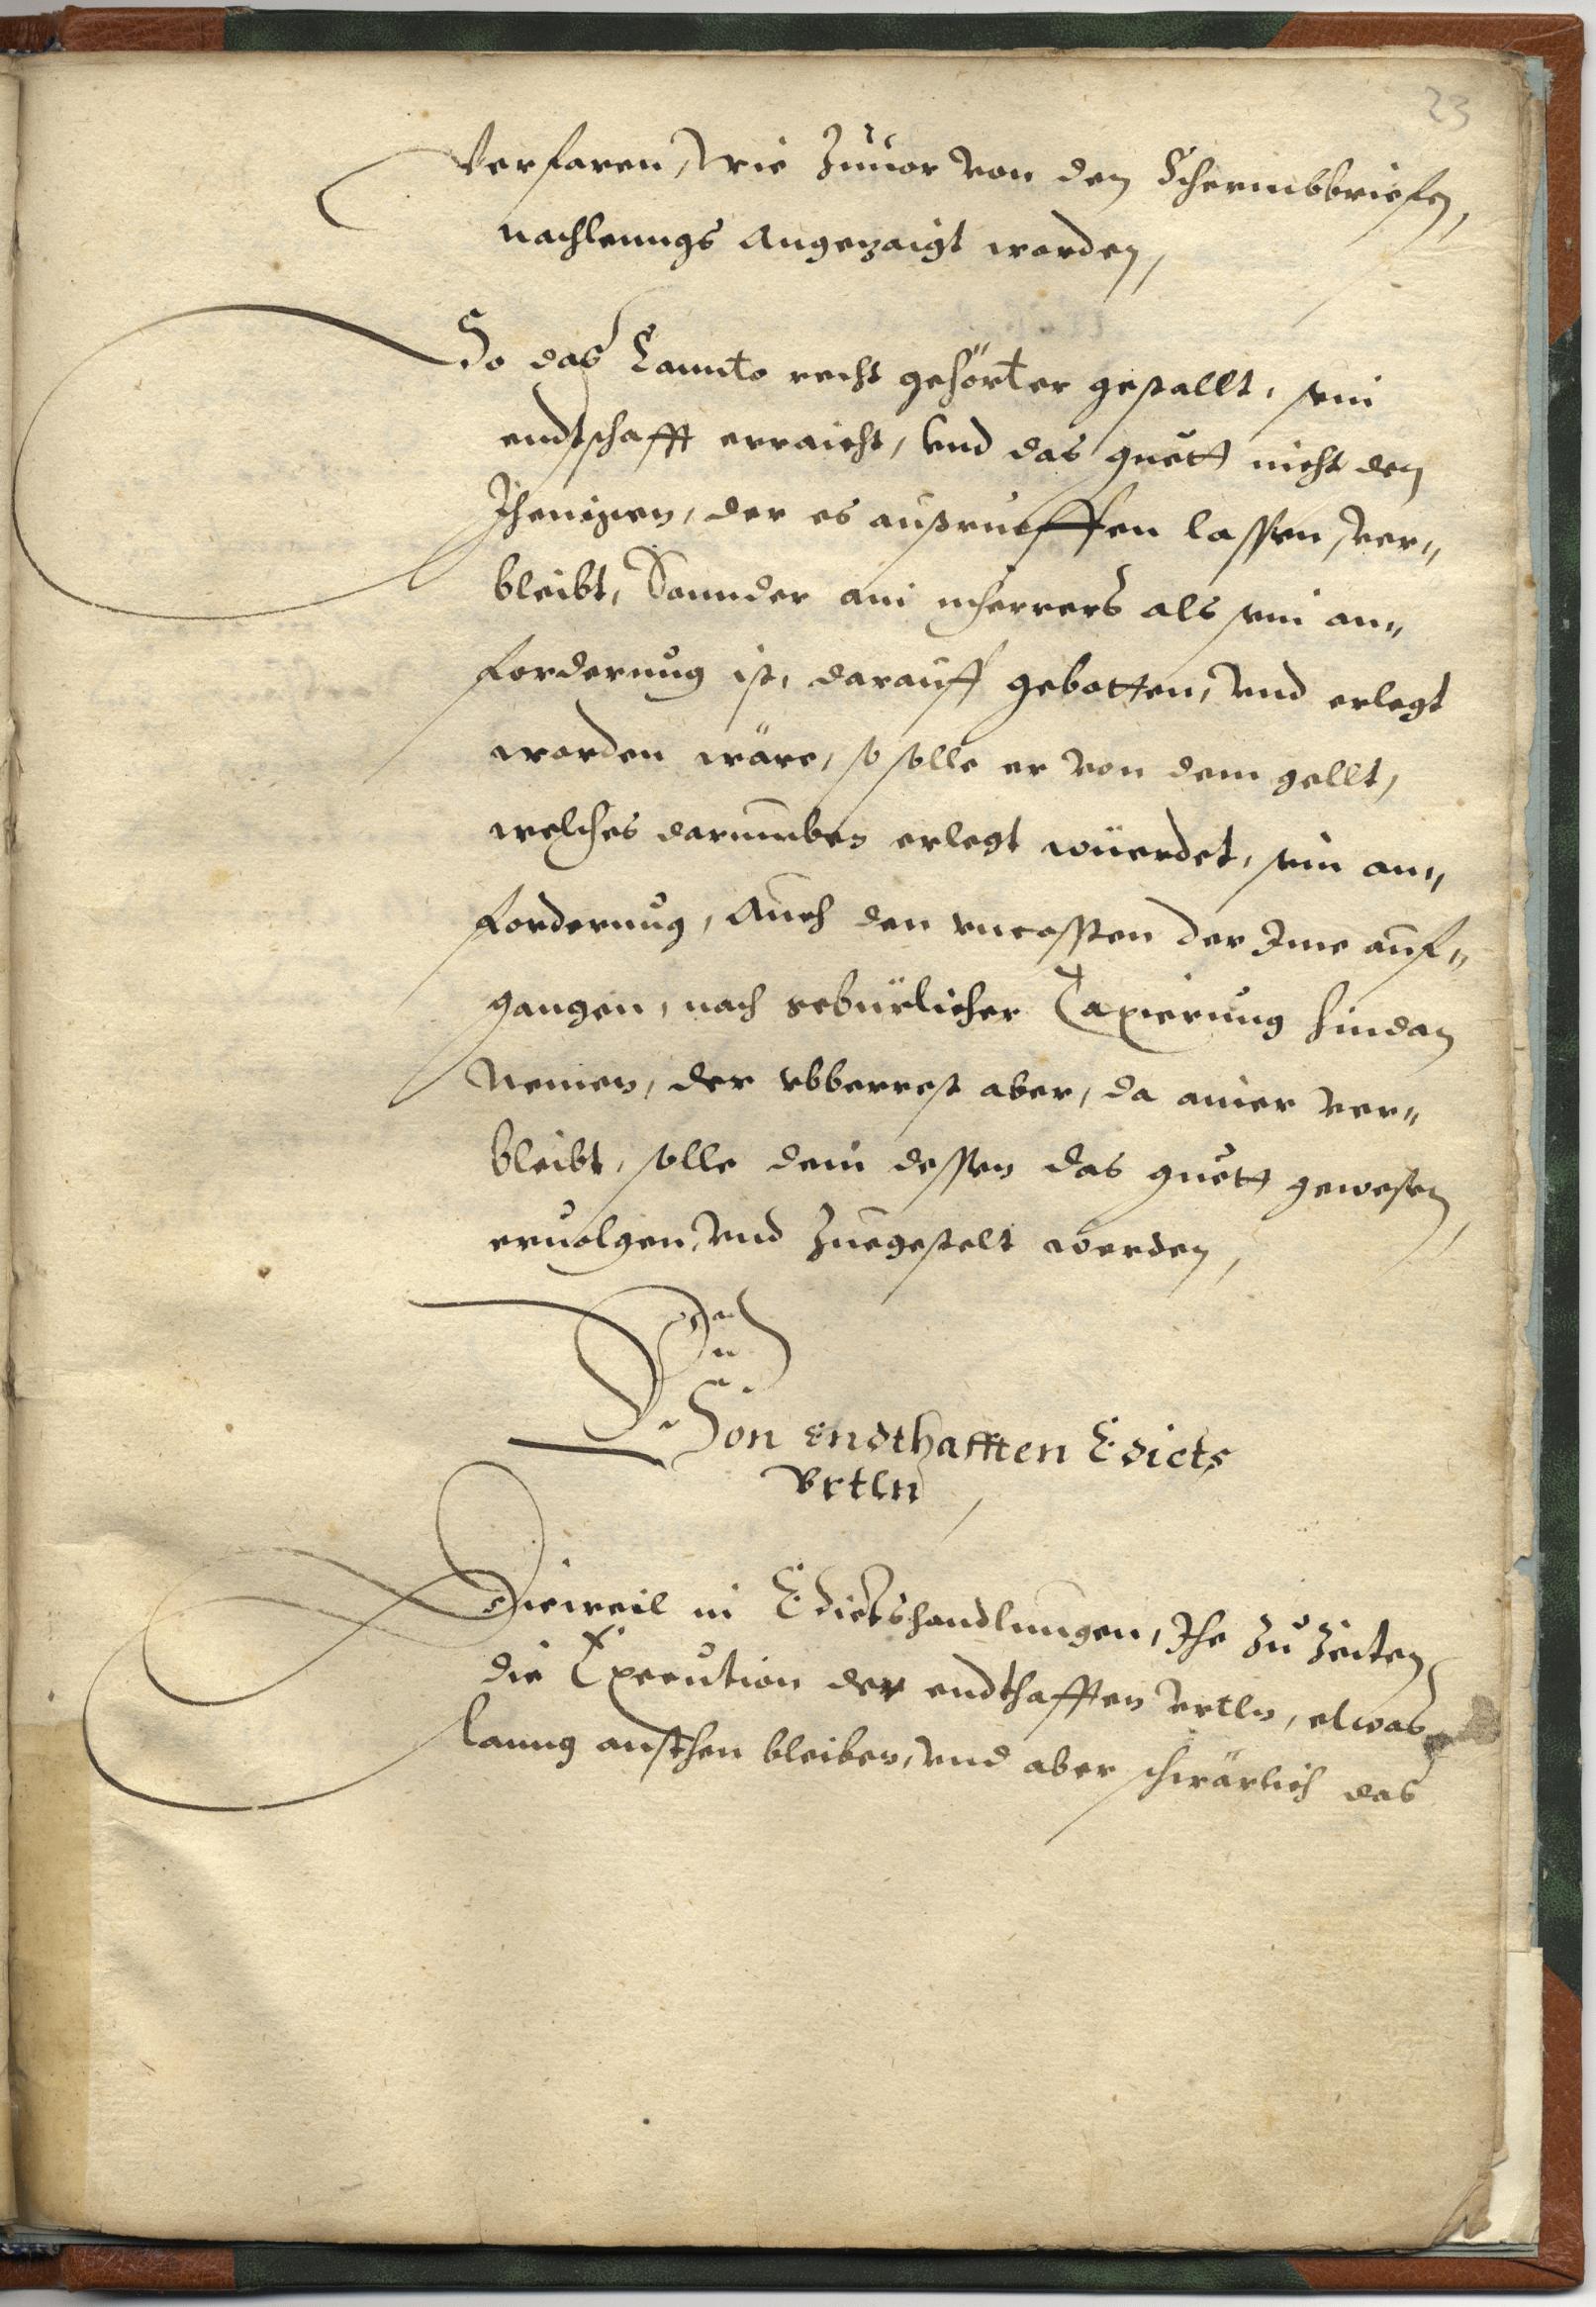 23
Verfaren, Wie Zuuor von den Schermbbriefen,
nachlenngs Angezaigt worden,
So das Lannts recht gehörter gestallt, sein
endtschafft erraicht, vnd das guett nicht den
Jhenigen, der es ausrueffen lassen, ver„
bleibt, Sonnder ain mherrers als sein an„
forderung ist, darauff gebotten, vnd erlegt
worden wäre, so solle er von dem gellt,
welches darumben erlegt wüerdet, sein an„
forderung, Auch den vncossten der Ime auf„
gangen, nach gebürlicher Taxierung hindan
Nemen, der vbberrest aber, da ainer ver„
bleibt, solle dem dessen das guett gewesen,
ervolgen, vnd Zuegestelt werden,
Von endthafften Edicts
Vrtln,
Dieweil in Edictshandlungen, Jhe Zu Zeiten
die Execution der endthafften vrtln, etwas
lanng anstehen bleiben, vnd aber schwärlich das